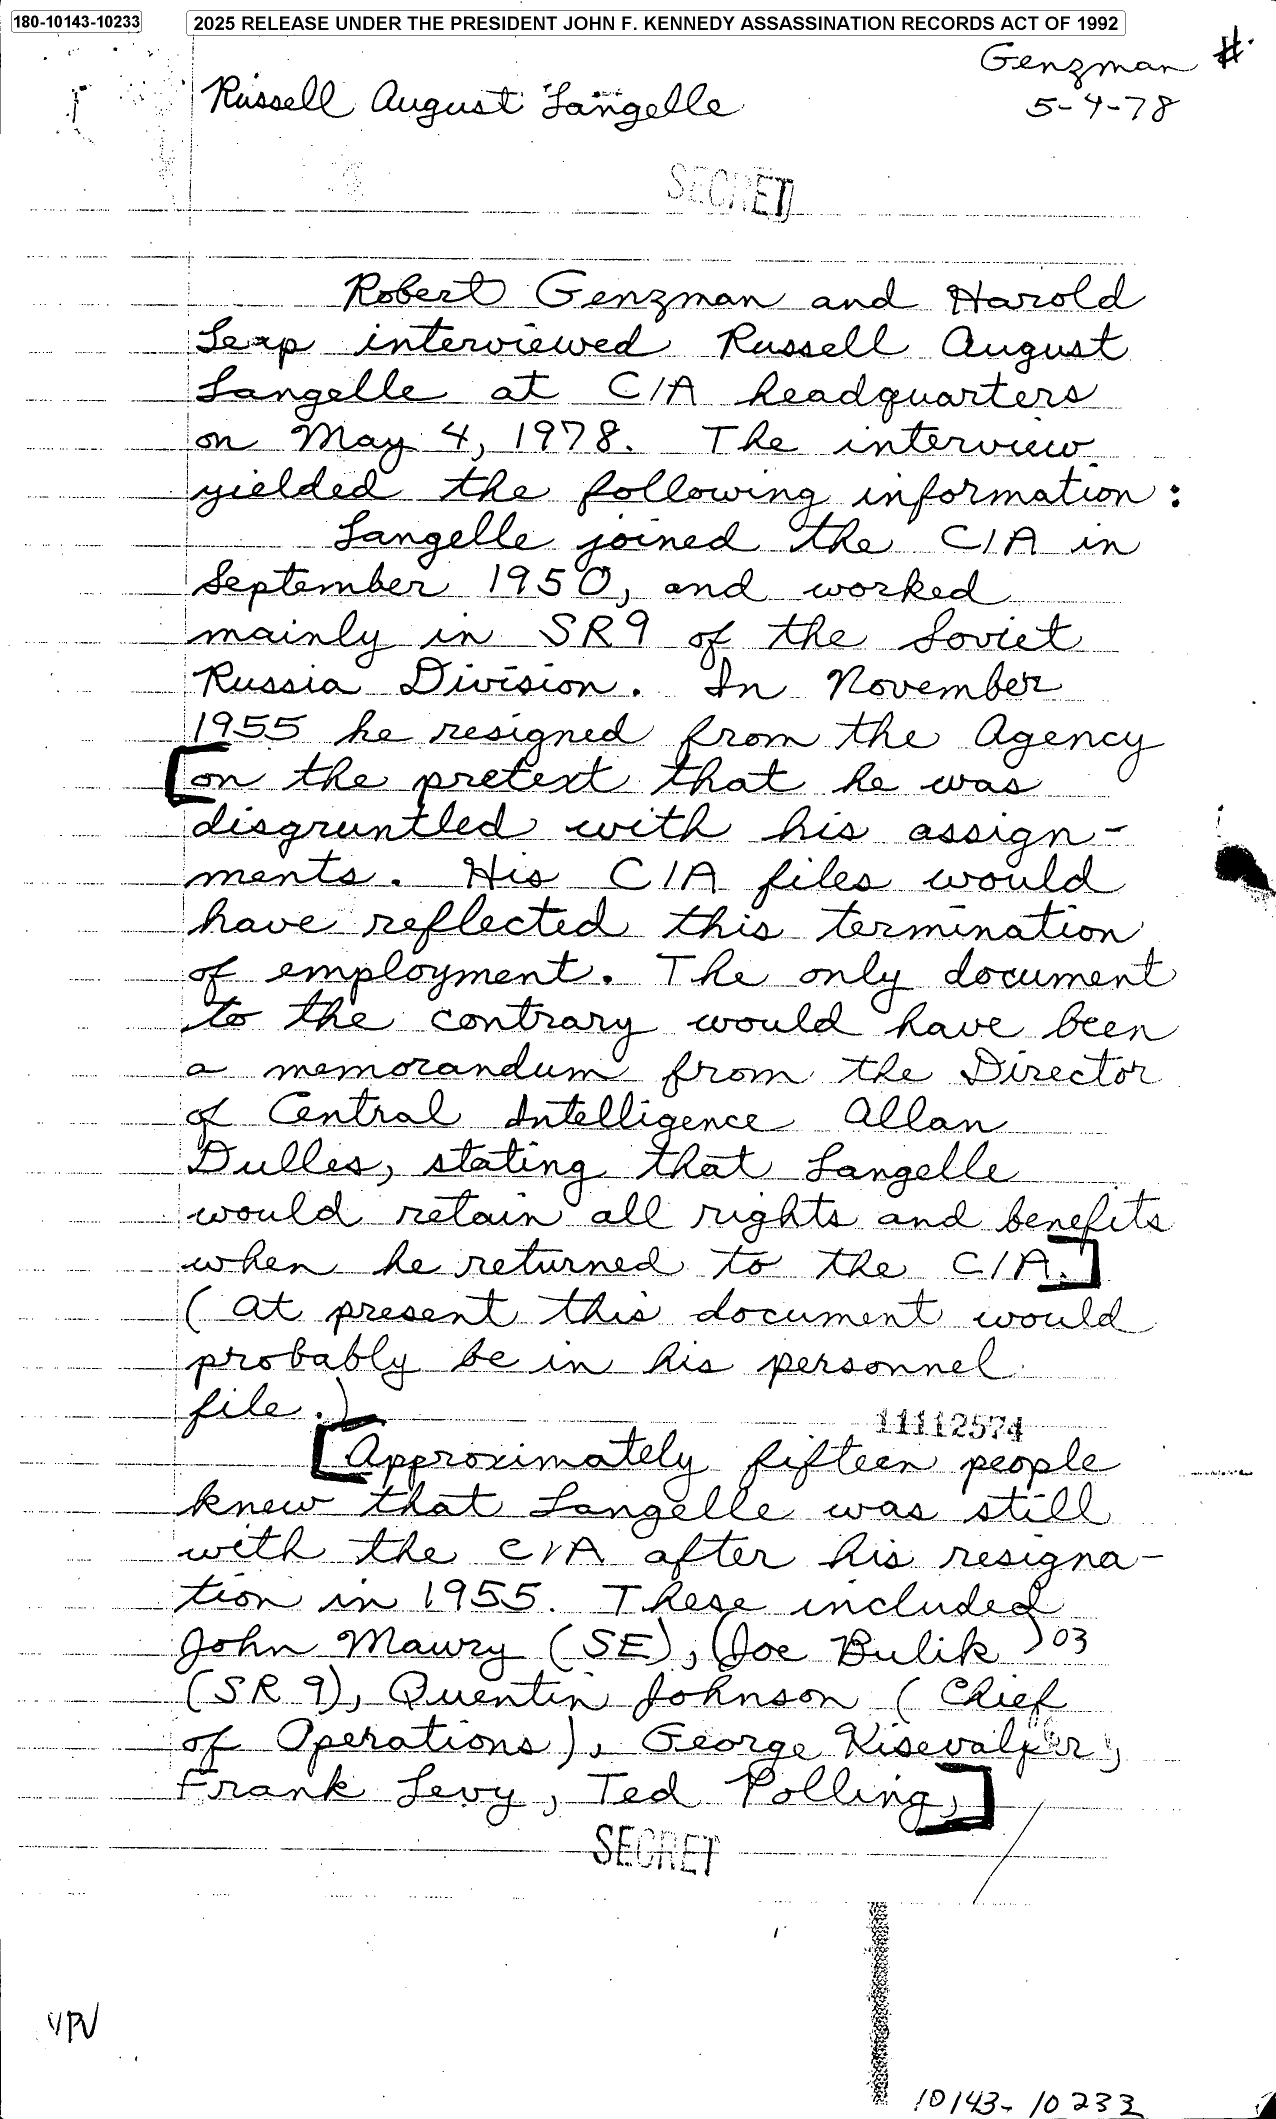 180-10143-10233
2025 RELEASE UNDER THE PRESIDENT JOHN F. KENNEDY ASSASSINATION RECORDS ACT OF 1992
Genzman #
Russell August Langelle 5-4-78
SECRET
Robert Genzman and Harold
Leap interviewed Russell August
Langelle at CIA headquarters
on May 4, 1978. The interview
yielded the following information:
Langelle joined the CIA in
September 1950, and worked
mainly in SR9 of the Soviet
Russia Division. In November
1955 he resigned from the Agency
[on the pretext that he was
disgruntled with his assign-
ments. His CIA files would
have reflected this termination
of employment. The only document
to the contrary would have been
a memorandum from the Director
of Central Intelligence Allan
Dulles, stating that Langelle
would retain all rights and benefits
when he returned to the CIA.]
(At present this document would
probably be in his personnel
file.)
11112574
[Approximately fifteen people
knew that Langelle was still
with the CIA after his resigna-
tion in 1955. These included
John Maury (SE), (Joe Bulik) 03
(SR 9), Quentin Johnson (Chief
of Operations), George Kisevalter,
Frank Levy, Ted Polling,]
SECRET
10143-10233